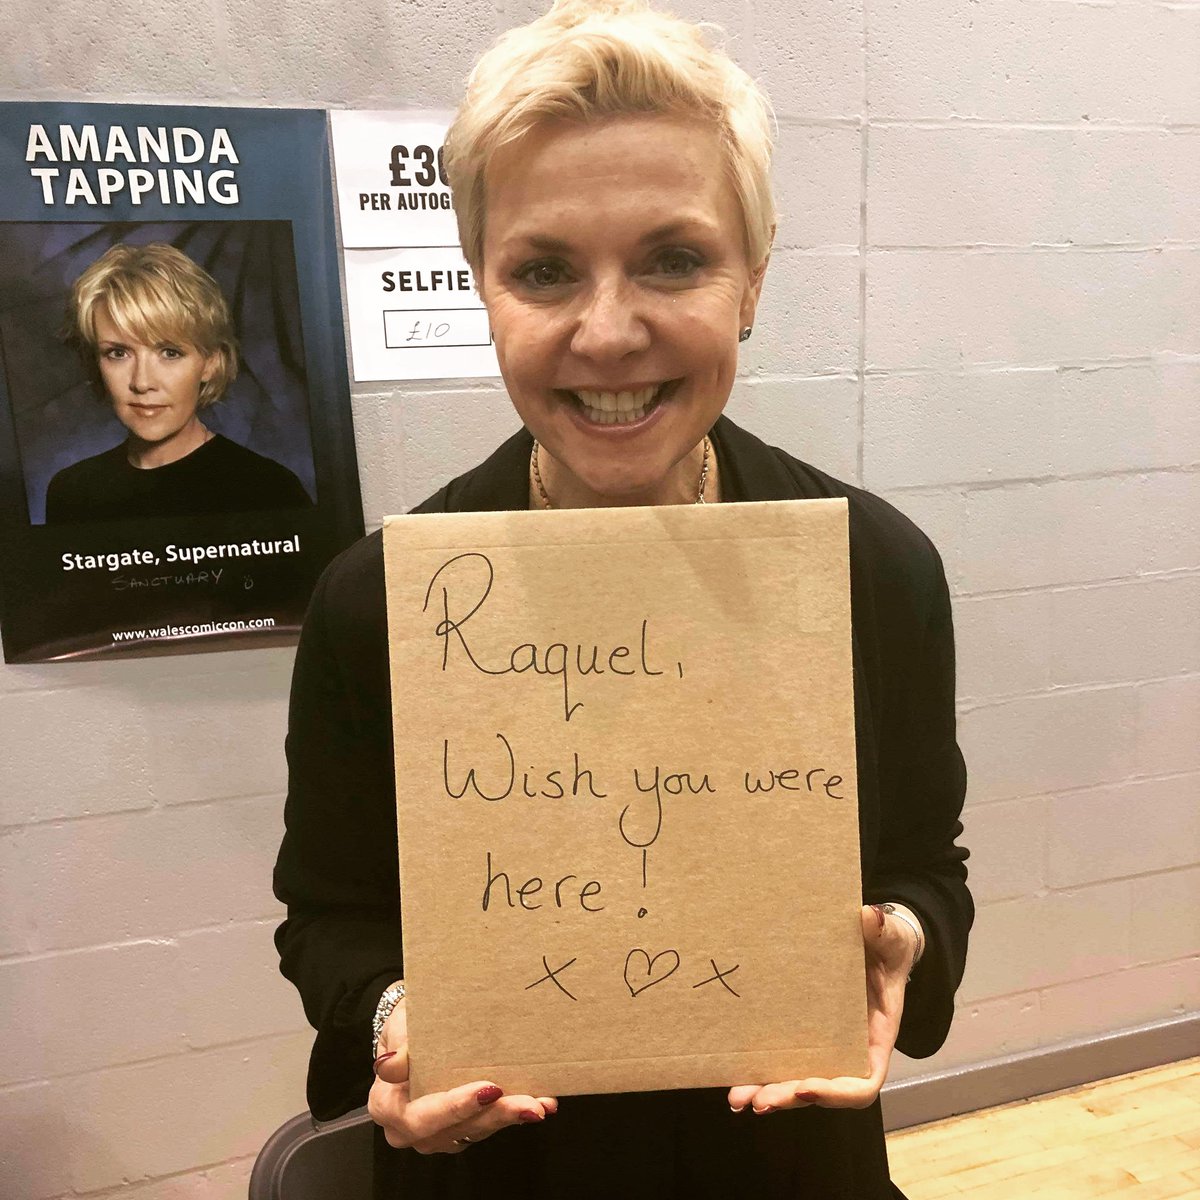 AMANDA
TAPPING
Stargate, Supernatural
SANCTUARY
www.walescomiccon.com
PER
SELFIE
£10
Raquel,
Wish you were
here!
x ♡ x